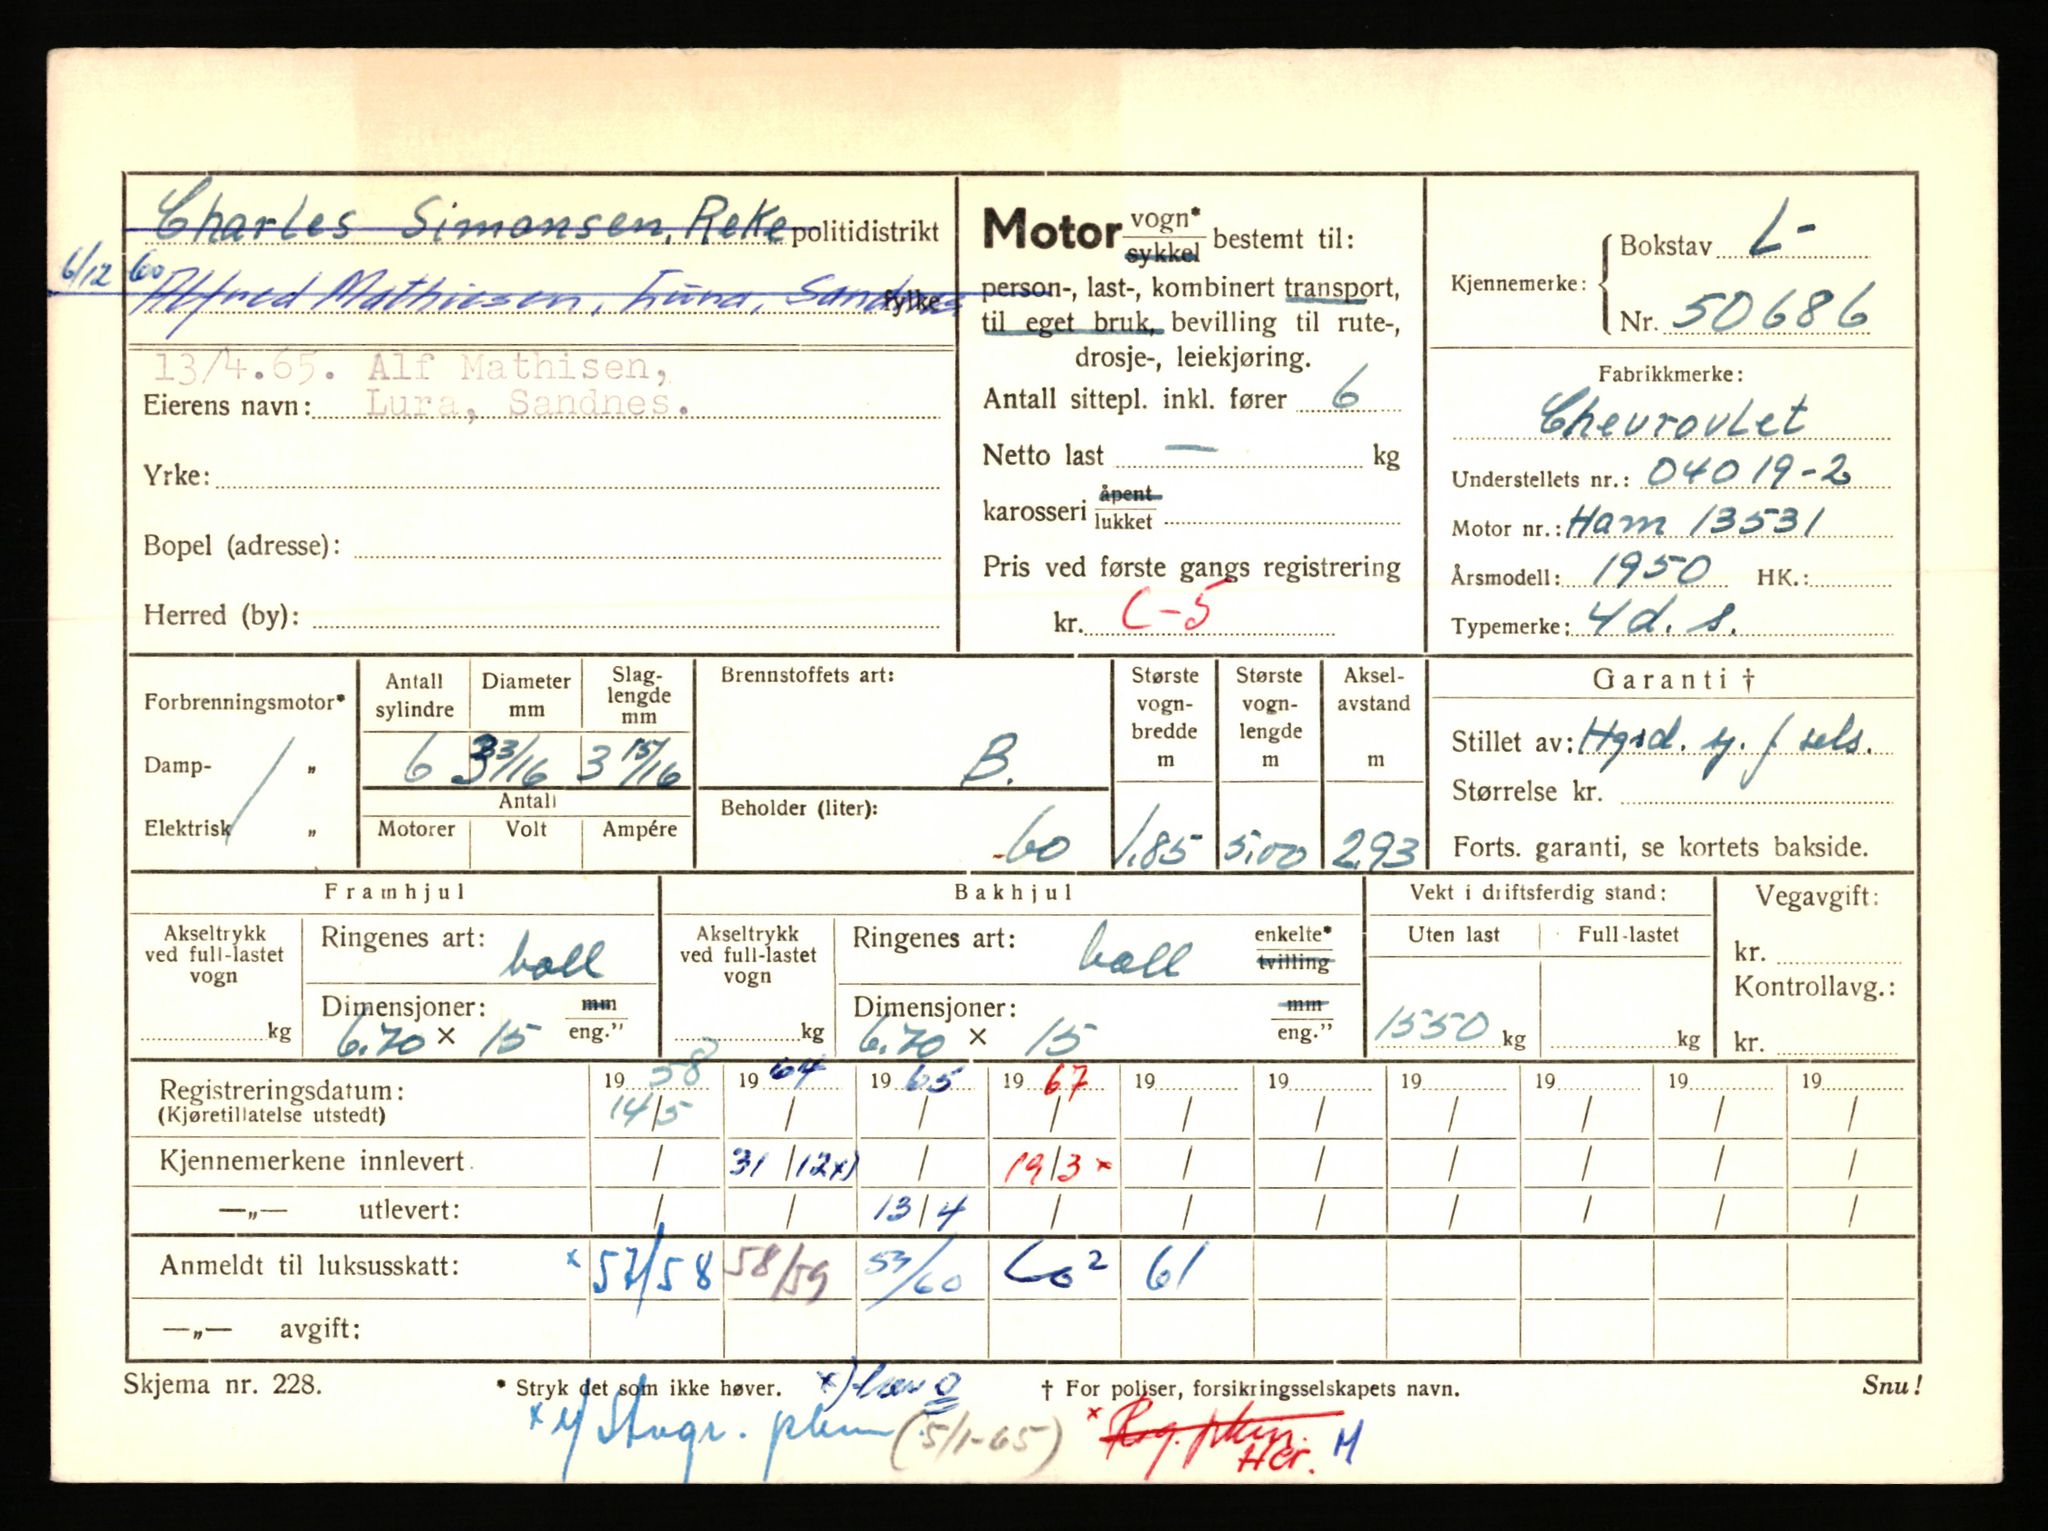 Charles Simonsen, Reke politidistrikt
6/12 60 Alfred Mathiesen, Lura, Sandnes fylke
13/4.65. Alf Mathisen,
Eierens navn: Lura, Sandnes.
Yrke:
Bopel (adresse):
Herred (by):
Motor vogn* sykkel bestemt til:
person-, last-, kombinert transport,
til eget bruk, bevilling til rute-,
drosje-, leiekjøring.
Antall sittepl. inkl. fører 6
Netto last — kg
karosseri åpent lukket
Pris ved første gangs registrering
kr. C-5
Kjennemerke: Bokstav L-
Nr. 50686
Fabrikkmerke:
Chevrovlet
Understellets nr.: 04019-2
Motor nr.: Ham 13531
Årsmodell: 1950 HK.:
Typemerke: 4d. s.
Forbrenningsmotor*
Damp- „
Elektrisk „
Antall sylindre Diameter mm Slaglengde mm
6 3 3/16 3 15/16
Antall
Motorer Volt Ampére
Brennstoffets art:
B.
Beholder (liter):
60
Største vognbredde m
1.85
Største vognlengde m
5.00
Akselavstand m
2.93
Garanti †
Stillet av: Hgsd. sj. f sels.
Størrelse kr.
Forts. garanti, se kortets bakside.
Framhjul
Akseltrykk ved full-lastet vogn
kg
Ringenes art: ball
Dimensjoner: mm
6.70 × 15 eng.”
Bakhjul
Akseltrykk ved full-lastet vogn
kg
Ringenes art: ball enkelte* tvilling
Dimensjoner: mm
6.70 × 15 eng.”
Vekt i driftsferdig stand:
Uten last Full-lastet
1550 kg kg
Vegavgift:
kr.
Kontrollavg.:
kr.
Registreringsdatum: 19 58 19 64 19 65 19 67 19 19 19 19 19 19
(Kjøretillatelse utstedt) 14/5 / / / / / / / / /
Kjennemerkene innlevert. / 31/12 x) / 19/3 * / / / / / /
—„— utlevert: / / 13/4 / / / / / / /
Anmeldt til luksusskatt: x 57/58 58/59 59/60 60 2 61
—„— avgift:
Skjema nr. 228. * Stryk det som ikke høver. x) † For poliser, forsikringsselskapets navn. Snu!
x Stvgr. (5/1-65) * Reg. Her. M